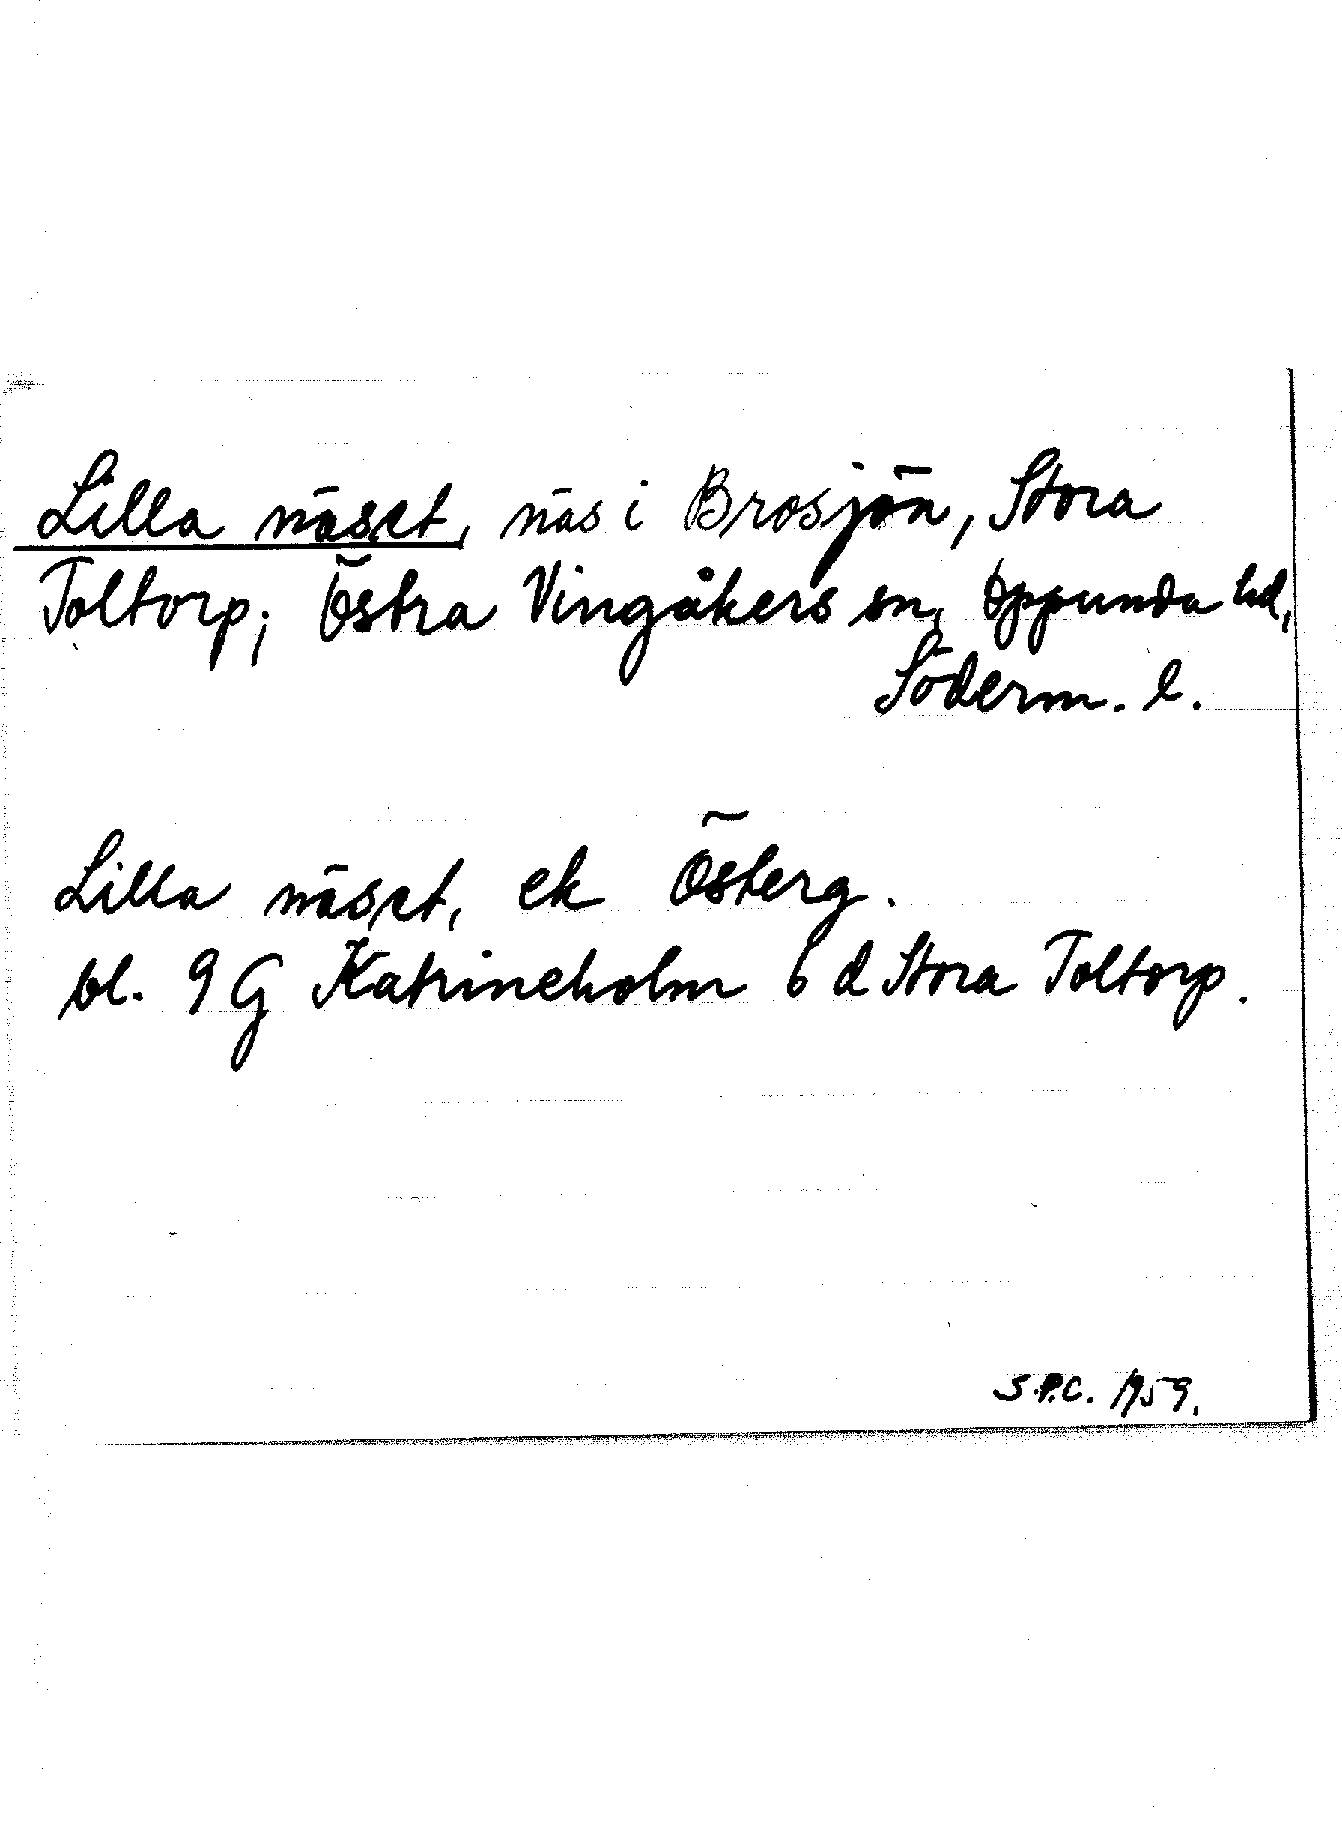 Lilla näset, näs i Brosjön, Stora
Toltorp; Östra Vingåkers sn, Oppunda hd,
Söderm. l.
Lilla näset, ek Österg.
bl. 9 G Katrineholm 6 d Stora Toltorp.
S.P.C. 1959.